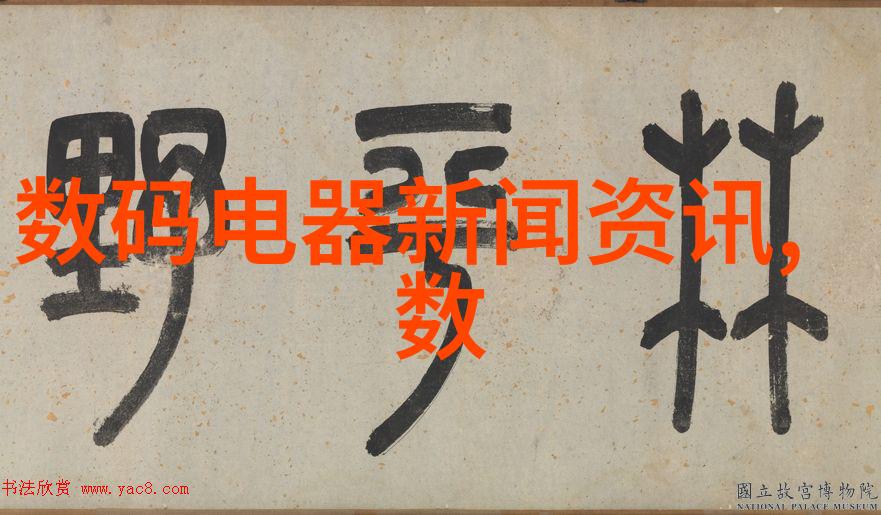 林平野
数码电器新闻资讯,
数
书法欣赏 www.yac8.com
國立故宮博物院
NATIONAL PALACE MUSEUM